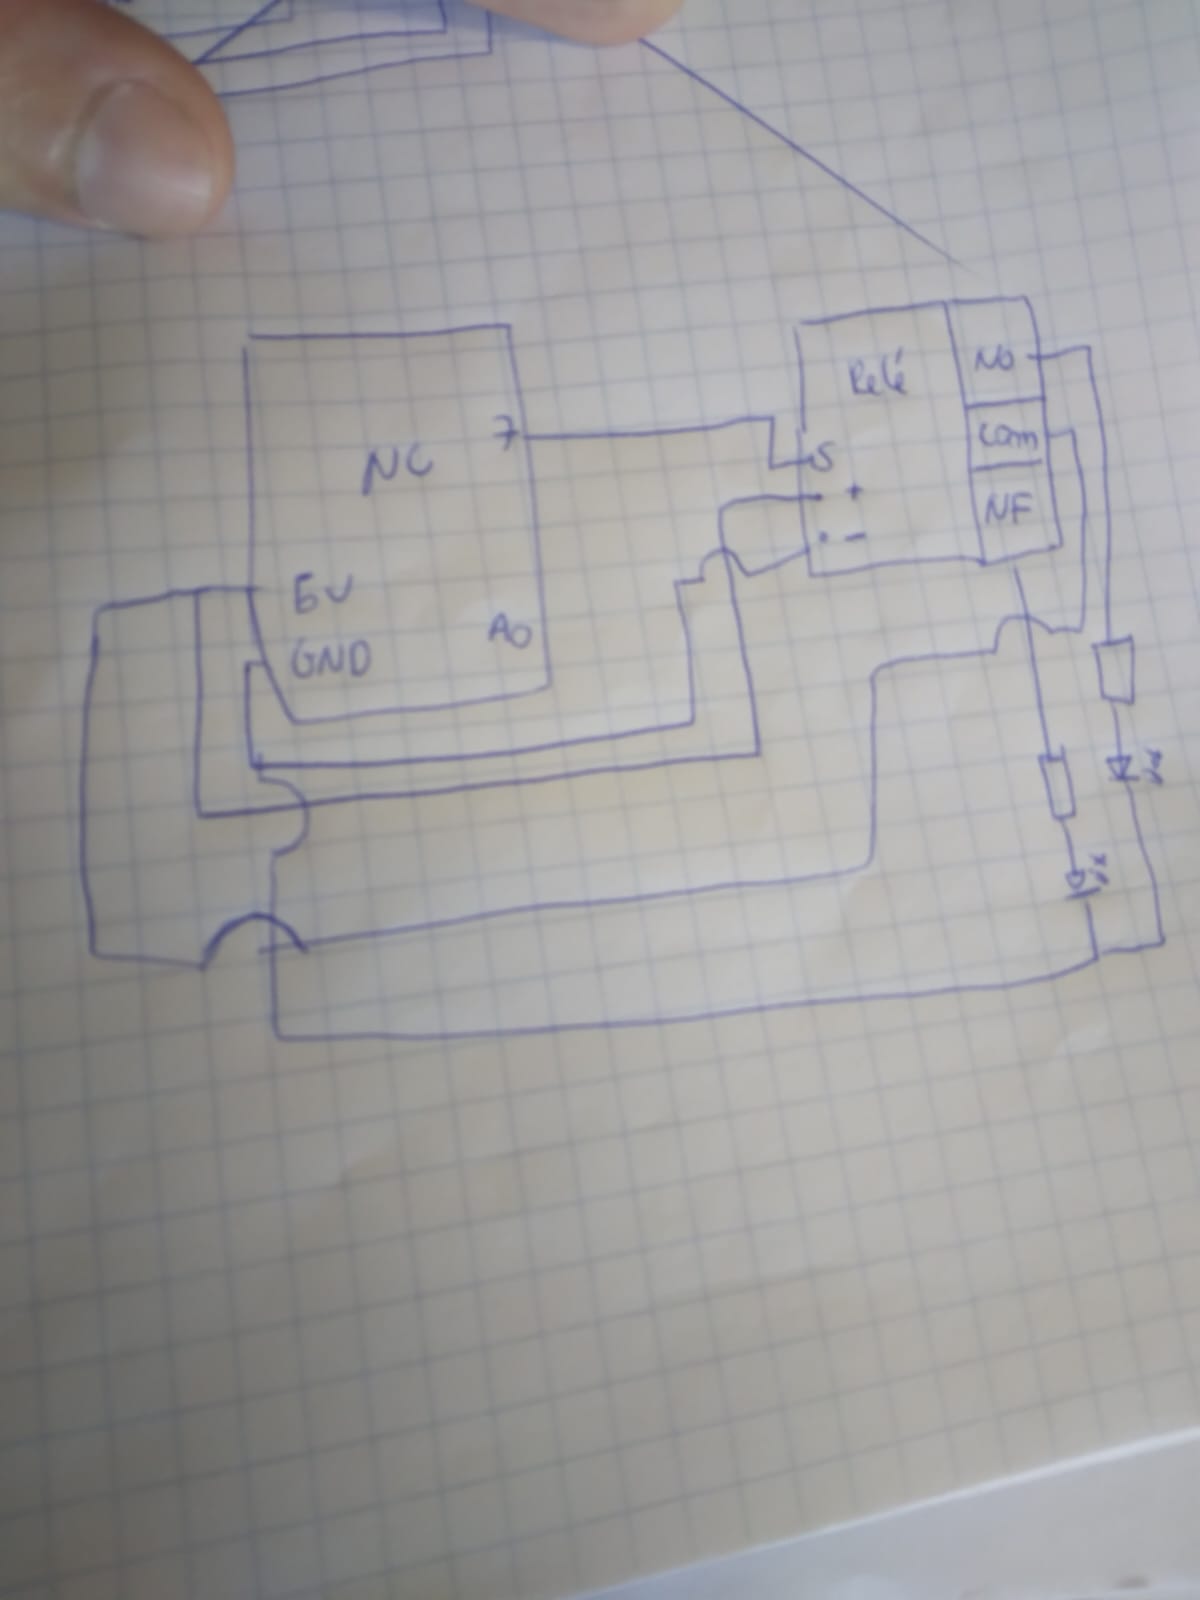 NC
7
5V
GND
A0
Relé
S
+
-
NO
Com
NF